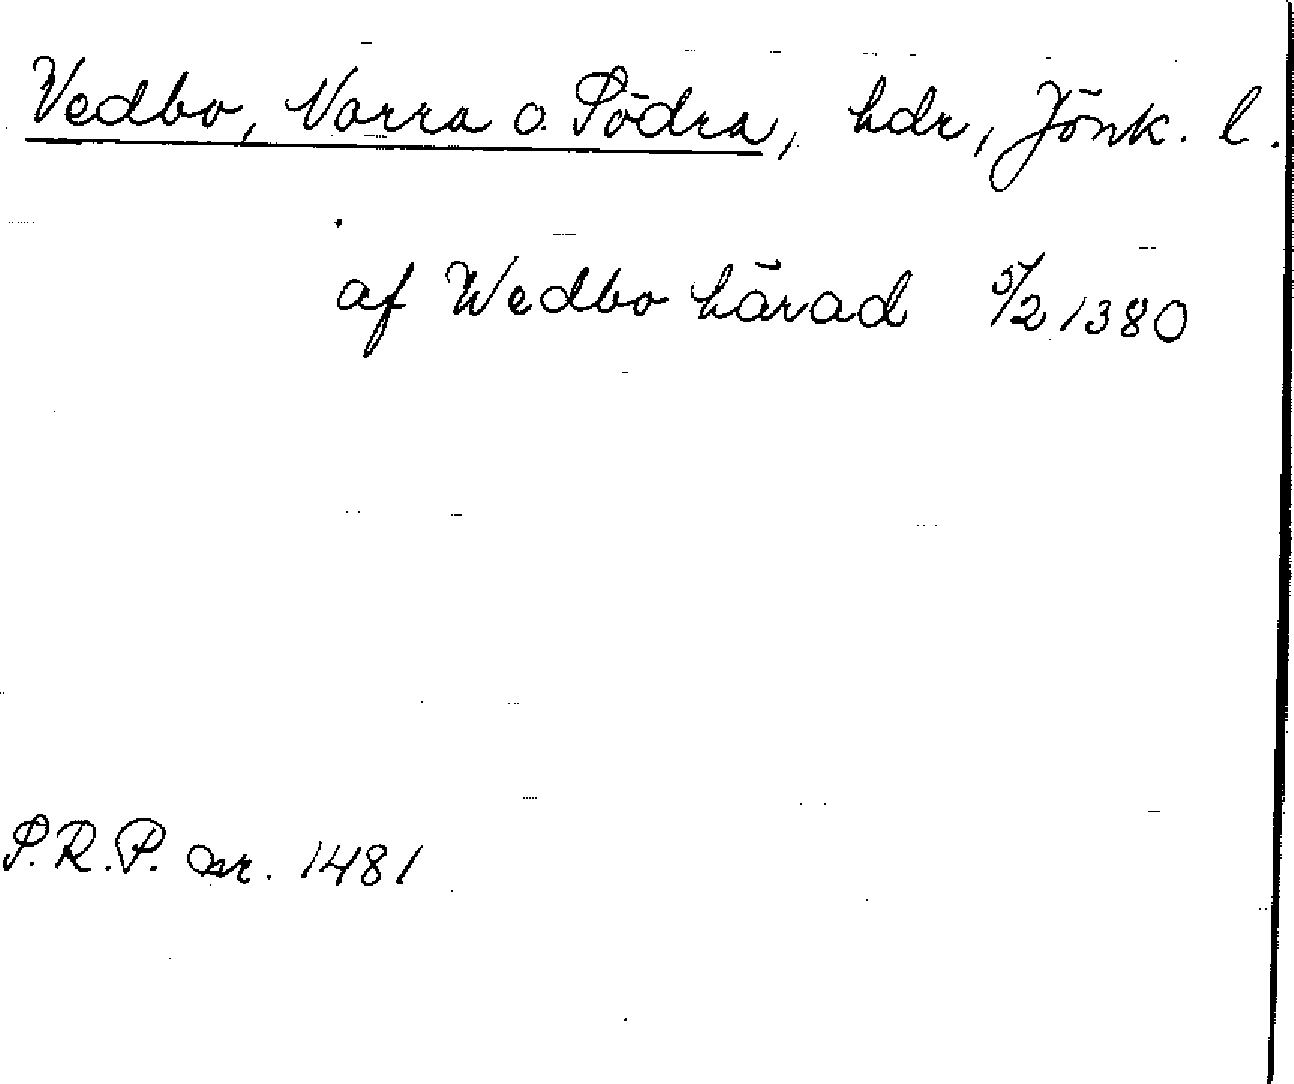 Vedbo, Norra o. Södra, hdr, Jönk. l.
af Wedbo härad 5/2 1380
S.R.P. nr. 1481